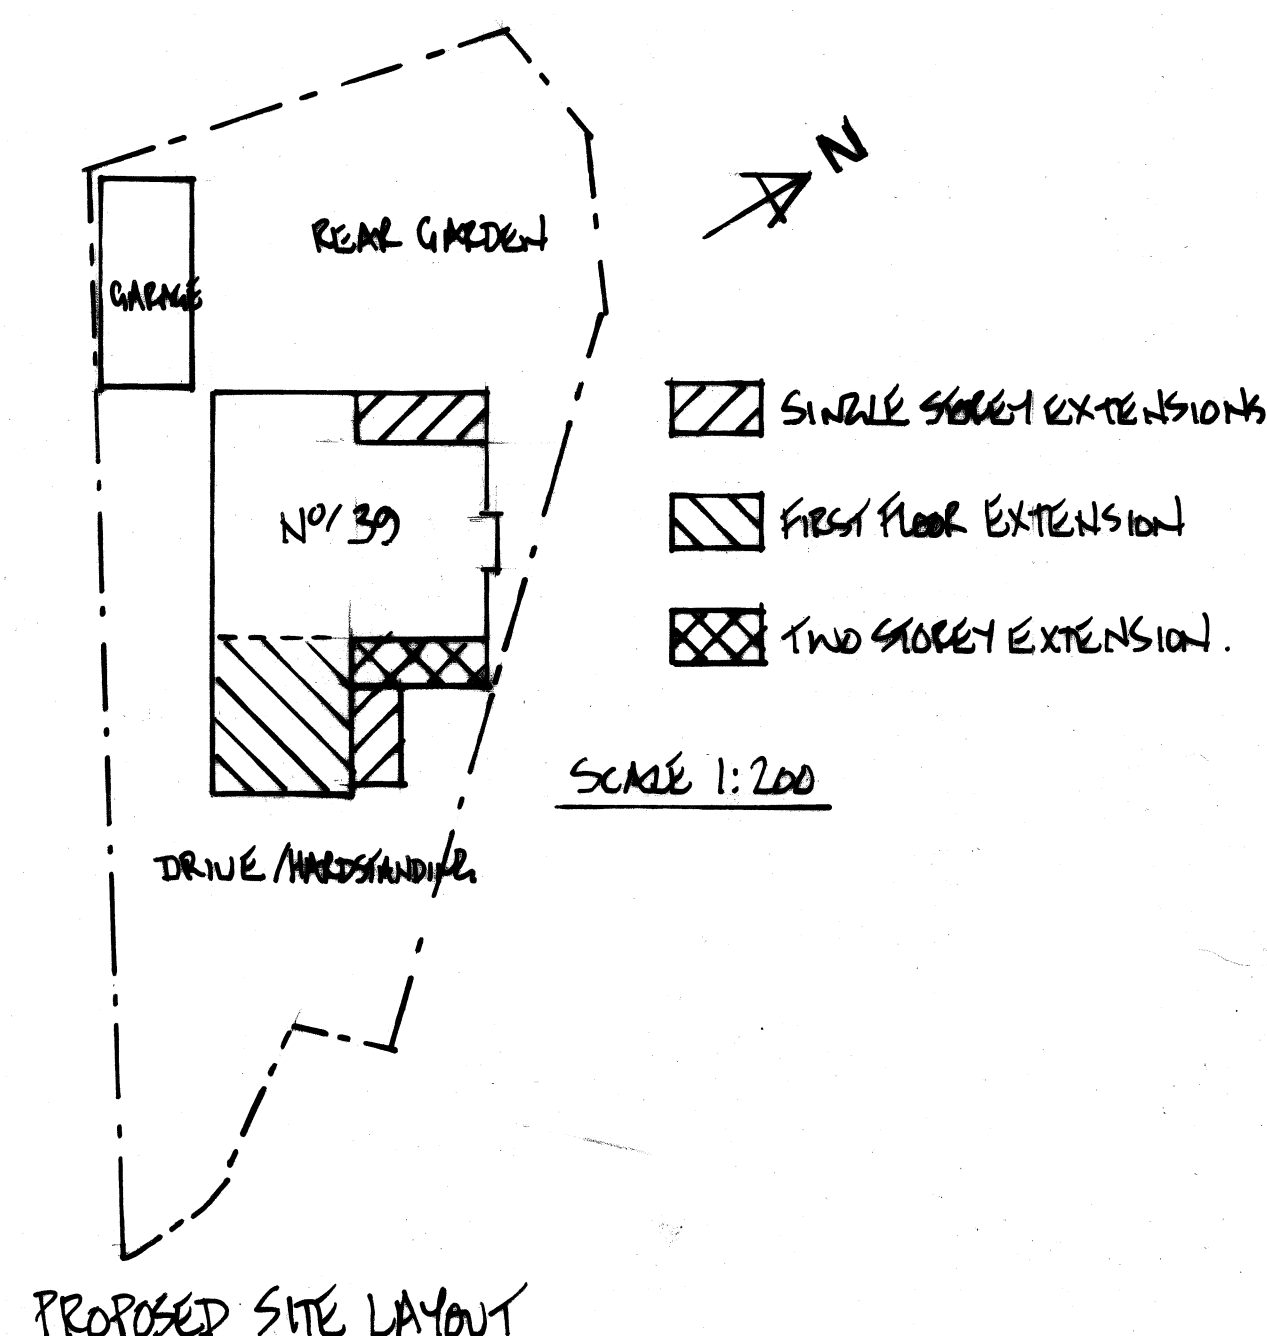 N
REAR GARDEN
GARAGE
SINGLE STOREY EXTENSIONS
Nº/ 39
FIRST FLOOR EXTENSION
TWO STOREY EXTENSION.
SCALE 1:200
DRIVE/HARDSTANDING.
PROPOSED SITE LAYOUT